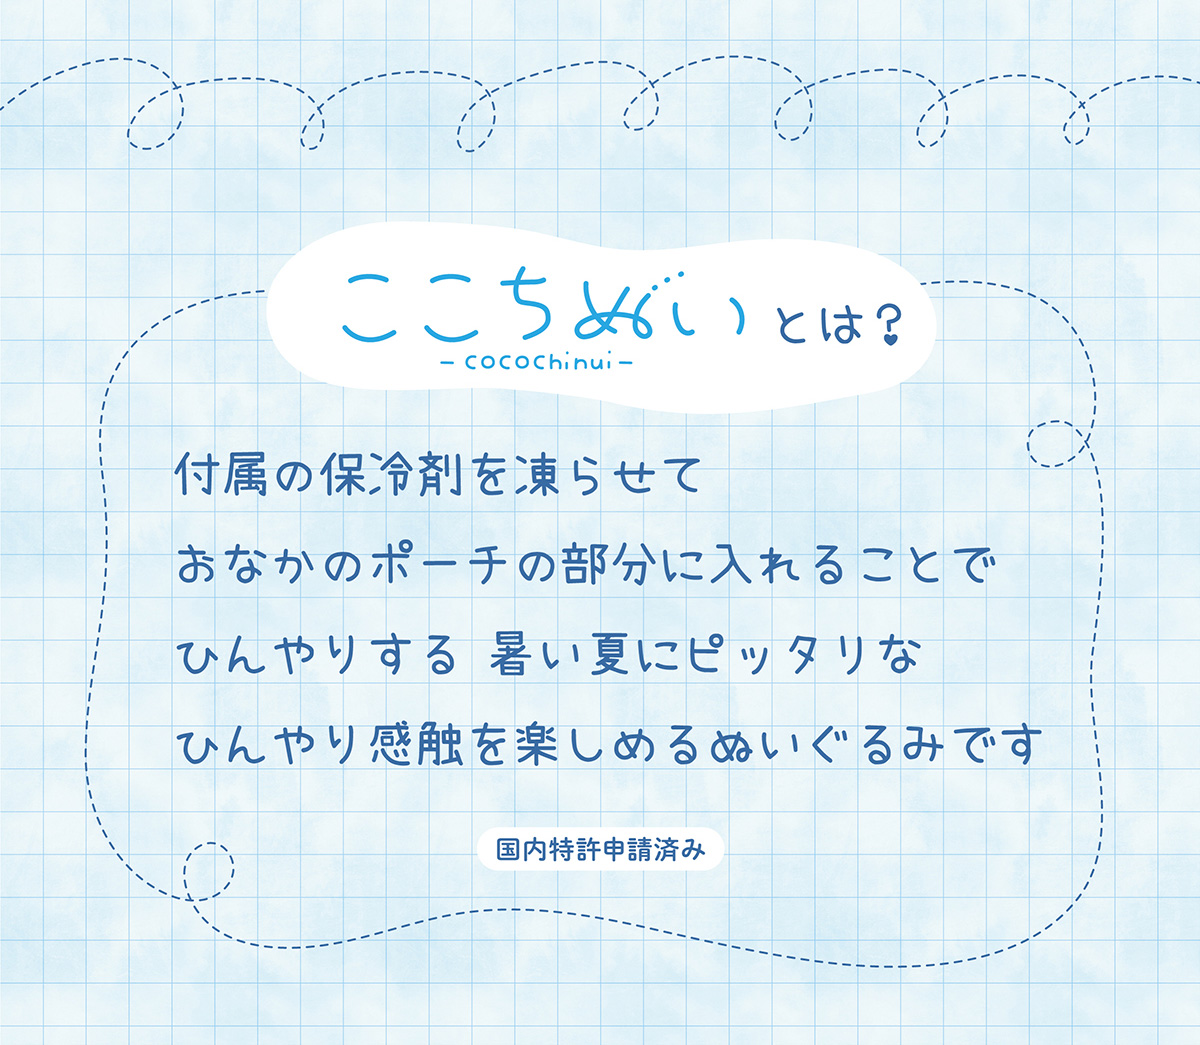 ここちぬい とは?
- cocochinui -
付属の保冷剤を凍らせて
おなかのポーチの部分に入れることで
ひんやりする 暑い夏にピッタリな
ひんやり感触を楽しめるぬいぐるみです
国内特許申請済み